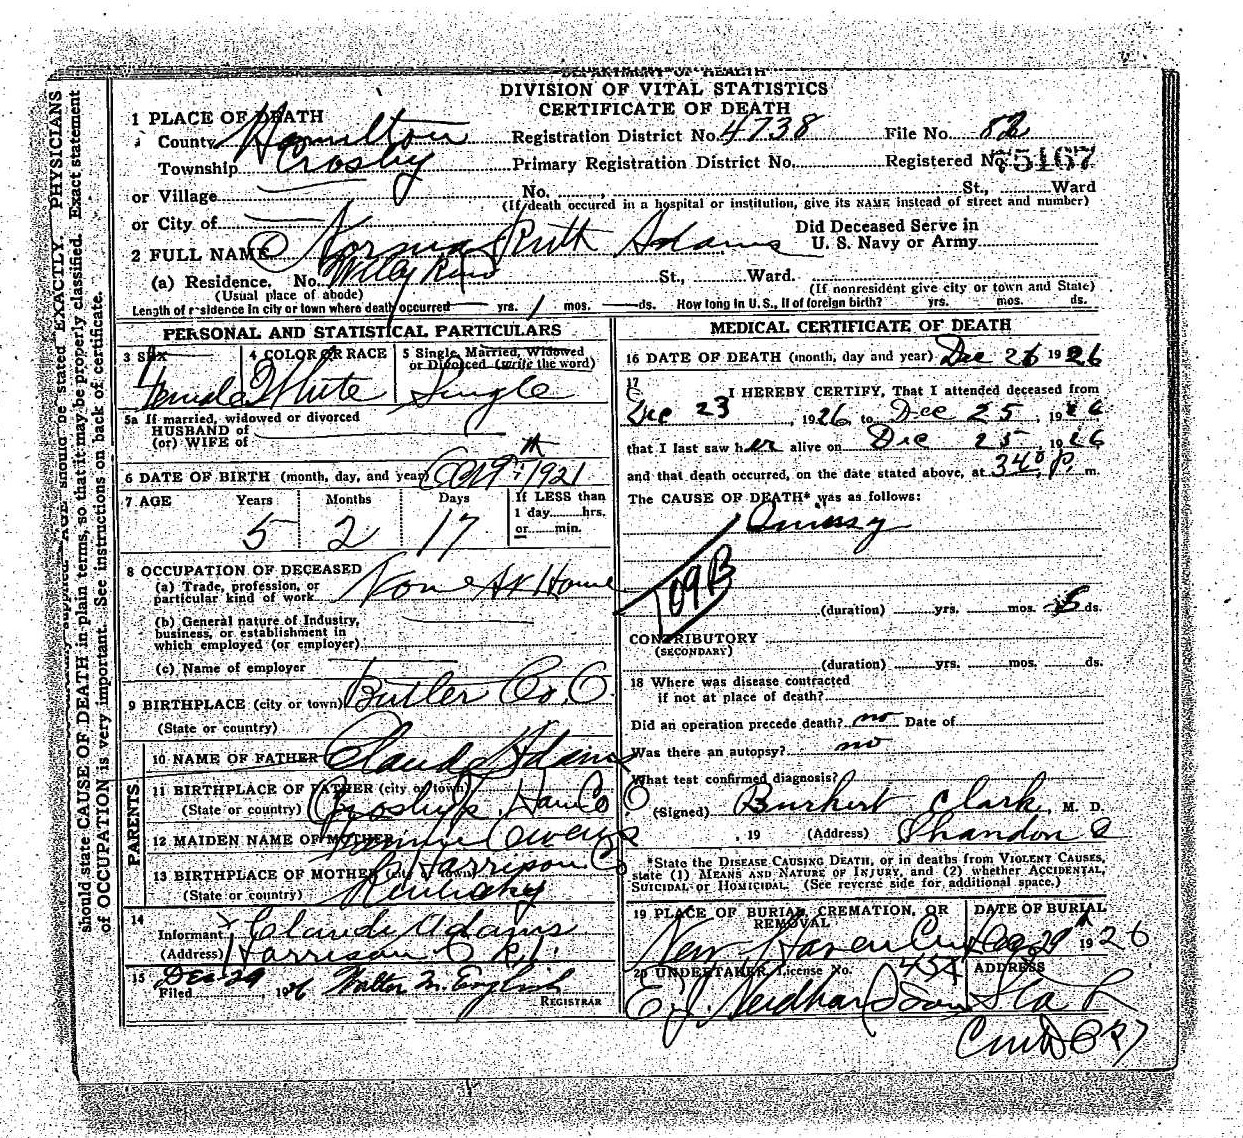 DEPARTMENT OF HEALTH
DIVISION OF VITAL STATISTICS
CERTIFICATE OF DEATH
1 PLACE OF DEATH
County Hamilton Registration District No. 4738 File No. 82
Township Crosby Primary Registration District No. Registered No. 75167
or Village No. St., Ward
(If death occured in a hospital or institution, give its NAME instead of street and number)
or City of
Did Deceased Serve in
U. S. Navy or Army
2 FULL NAME Norma Ruth Adams
(a) Residence. No. Willey Road St., Ward.
(Usual place of abode) (If nonresident give city or town and State)
Length of residence in city or town where death occurred yrs. 1 mos. ds. How long in U. S., if of foreign birth? yrs. mos. ds.
PERSONAL AND STATISTICAL PARTICULARS
3 SEX
Female
4 COLOR OR RACE
White
5 Single, Married, Widowed
or Divorced (write the word)
Single
5a If married, widowed or divorced
HUSBAND of
(or) WIFE of
6 DATE OF BIRTH (month, day, and year) 1921
7 AGE Years Months Days
5 2 17
If LESS than
1 day hrs.
or min.
8 OCCUPATION OF DECEASED
(a) Trade, profession, or
particular kind of work None At Home
(b) General nature of Industry,
business, or establishment in
which employed (or employer)
(c) Name of employer
9 BIRTHPLACE (city or town) Butler Co. O
(State or country)
PARENTS
10 NAME OF FATHER Claude Adams
11 BIRTHPLACE OF FATHER (city or town)
(State or country) Crosby Ham Co O
12 MAIDEN NAME OF MOTHER Owens
13 BIRTHPLACE OF MOTHER (city or town) Harrison Co
(State or country) Kentucky
14
Informant Claude Adams
(Address) Harrison O R1.
15
Filed Dec 29, 1926 Walter M. English
REGISTRAR
MEDICAL CERTIFICATE OF DEATH
16 DATE OF DEATH (month, day and year) Dec 26 1926
17
I HEREBY CERTIFY, That I attended deceased from
Dec 23, 1926, to Dec 25, 1926
that I last saw her alive on Dec 25, 1926
and that death occurred, on the date stated above, at 340 P. m.
The CAUSE OF DEATH* was as follows:
Quinsy
109B
(duration) yrs. mos. ds.
CONTRIBUTORY
(SECONDARY)
(duration) yrs. mos. ds.
18 Where was disease contracted
if not at place of death?
Did an operation precede death? no Date of
Was there an autopsy? no
What test confirmed diagnosis?
(Signed) Burhert Clark, M. D.
, 19 (Address) Shandon O
*State the DISEASE CAUSING DEATH, or in deaths from VIOLENT CAUSES,
state (1) MEANS AND NATURE OF INJURY, and (2) whether ACCIDENTAL,
SUICIDAL or HOMICIDAL. (See reverse side for additional space.)
19 PLACE OF BURIAL, CREMATION, OR
REMOVAL
New Haven Cem
DATE OF BURIAL
Dec 29 1926
20 UNDERTAKER, License No. 454
E. J. Neidhard Son
ADDRESS
Sta L
Cint O R7
PHYSICIANS
AGE should be stated EXACTLY.
should state CAUSE OF DEATH in plain terms, so that it may be properly classified. Exact statement
of OCCUPATION is very important. See instructions on back of certificate.